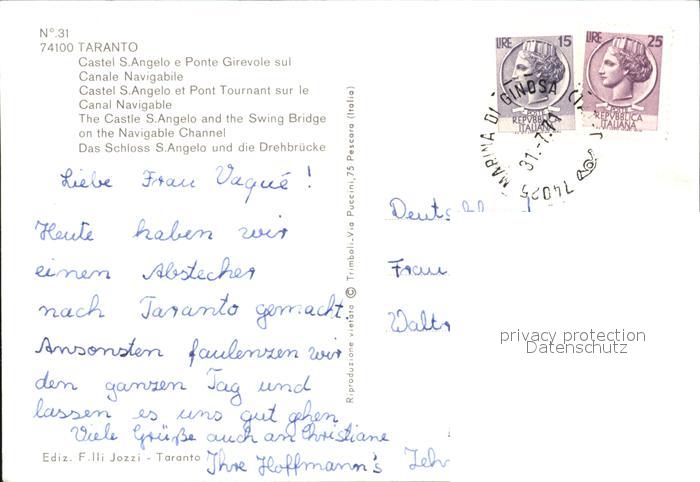 N°.31
74100 TARANTO
Castel S.Angelo e Ponte Girevole sul
Canale Navigabile
Castel S.Angelo et Pont Tournant sur le
Canal Navigable
The Castle S.Angelo and the Swing Bridge
on the Navigable Channel
Das Schloss S.Angelo und die Drehbrücke
Liebe Frau Vaqué!
Heute haben wir
einen Abstecher
nach Taranto gemacht.
Ansonsten faulenzen wir
den ganzen Tag und
lassen es uns gut gehen
Viele Grüße auch an Christiane
Ihre Hoffmann's
Ediz. F.lli Jozzi - Taranto
Riproduzione vietata © Trimboli-Via Puccini,75 Pescara (Italia)
LIRE 15
POSTE
REPVBBLICA
ITALIANA
LIRE 25
POSTE
REPVBBLICA
ITALIANA
74025 MARINA DI GINOSA (TA)
Frau
privacy protection
Datenschutz